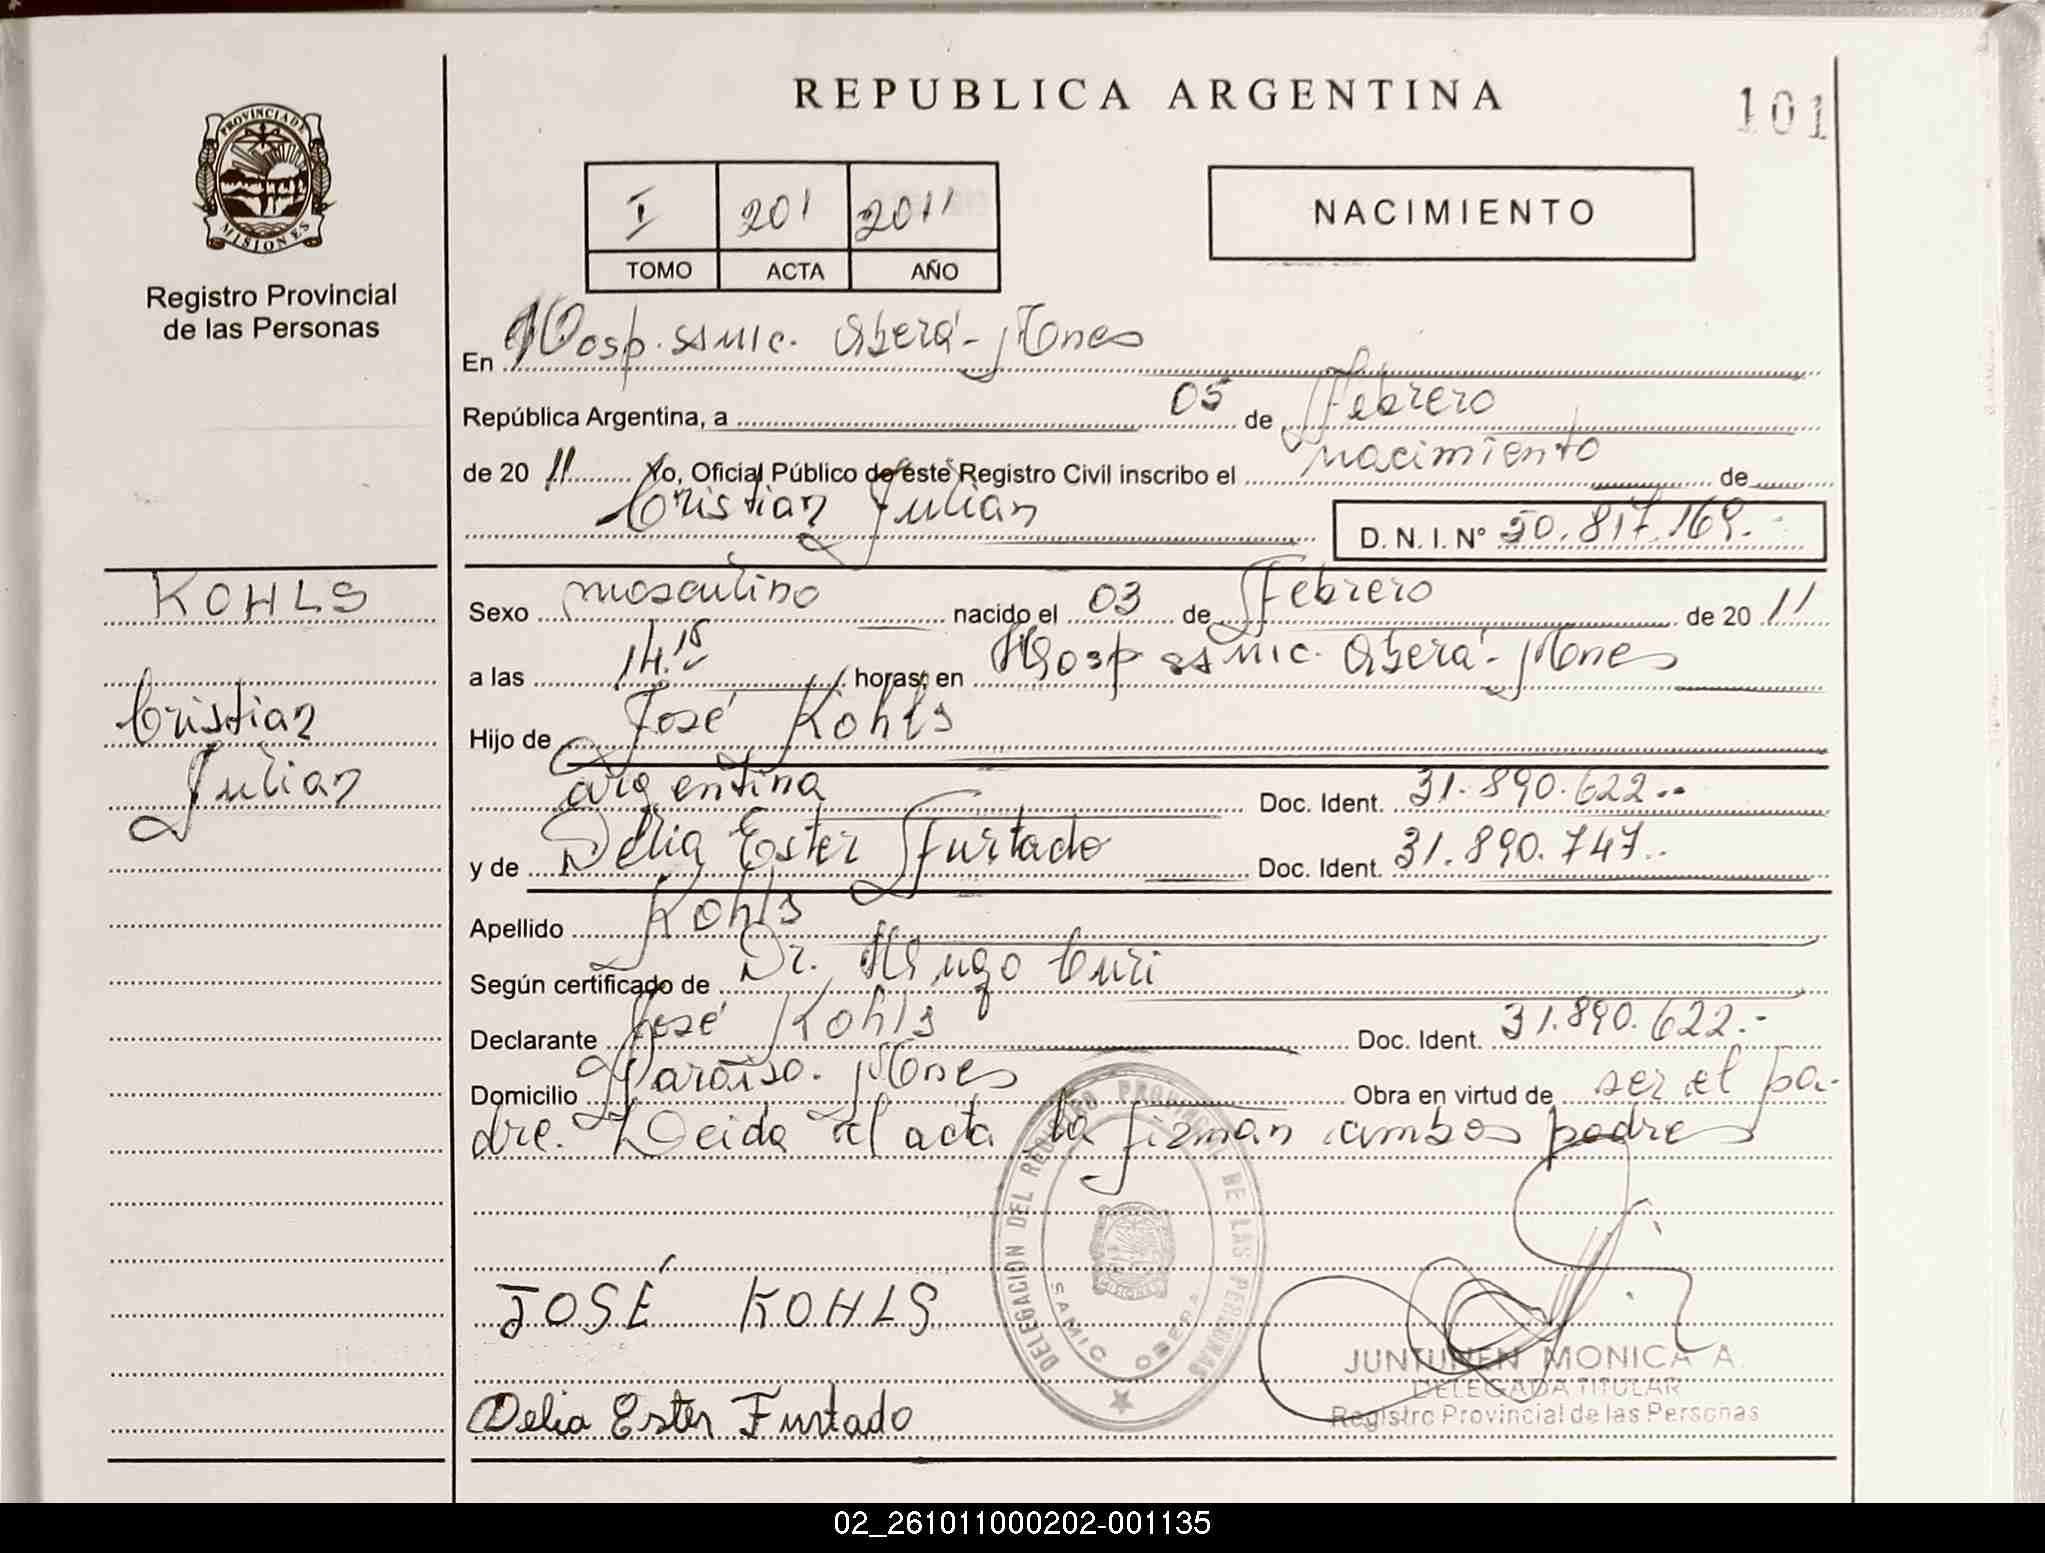 REPUBLICA ARGENTINA
101
PROVINCIA DE
MISIONES
Registro Provincial
de las Personas
I 201 2011
TOMO ACTA AÑO
NACIMIENTO
En Hosp. SAMIC. Oberá - Mnes
República Argentina, a 05 de Febrero
de 20 11 Yo, Oficial Público de este Registro Civil inscribo el nacimiento de
Cristian Julian
D. N. I. N° 50.817.169.-
KOHLS
Cristian
Julian
Sexo masculino nacido el 03 de Febrero de 20 11
a las 14.15 horas; en Hosp SAMIC. Oberá - Mnes
Hijo de José Kohls
argentina Doc. Ident. 31.890.622.-
y de Delia Ester Furtado Doc. Ident. 31.890.747.-
Apellido Kohls
Según certificado de Dr. Hugo Curi
Declarante José Kohls Doc. Ident. 31.890.622.-
Domicilio Paraíso. Mnes Obra en virtud de ser el pa-
dre. Leida el acta la firman ambos padres
DELEGACION DEL REGISTRO PROVINCIAL DE LAS PERSONAS
SAMIC OBERA
JOSÉ KOHLS
JUNTUNEN MONICA A.
DELEGADA TITULAR
Registro Provincial de las Personas
Delia Ester Furtado
02_261011000202-001135